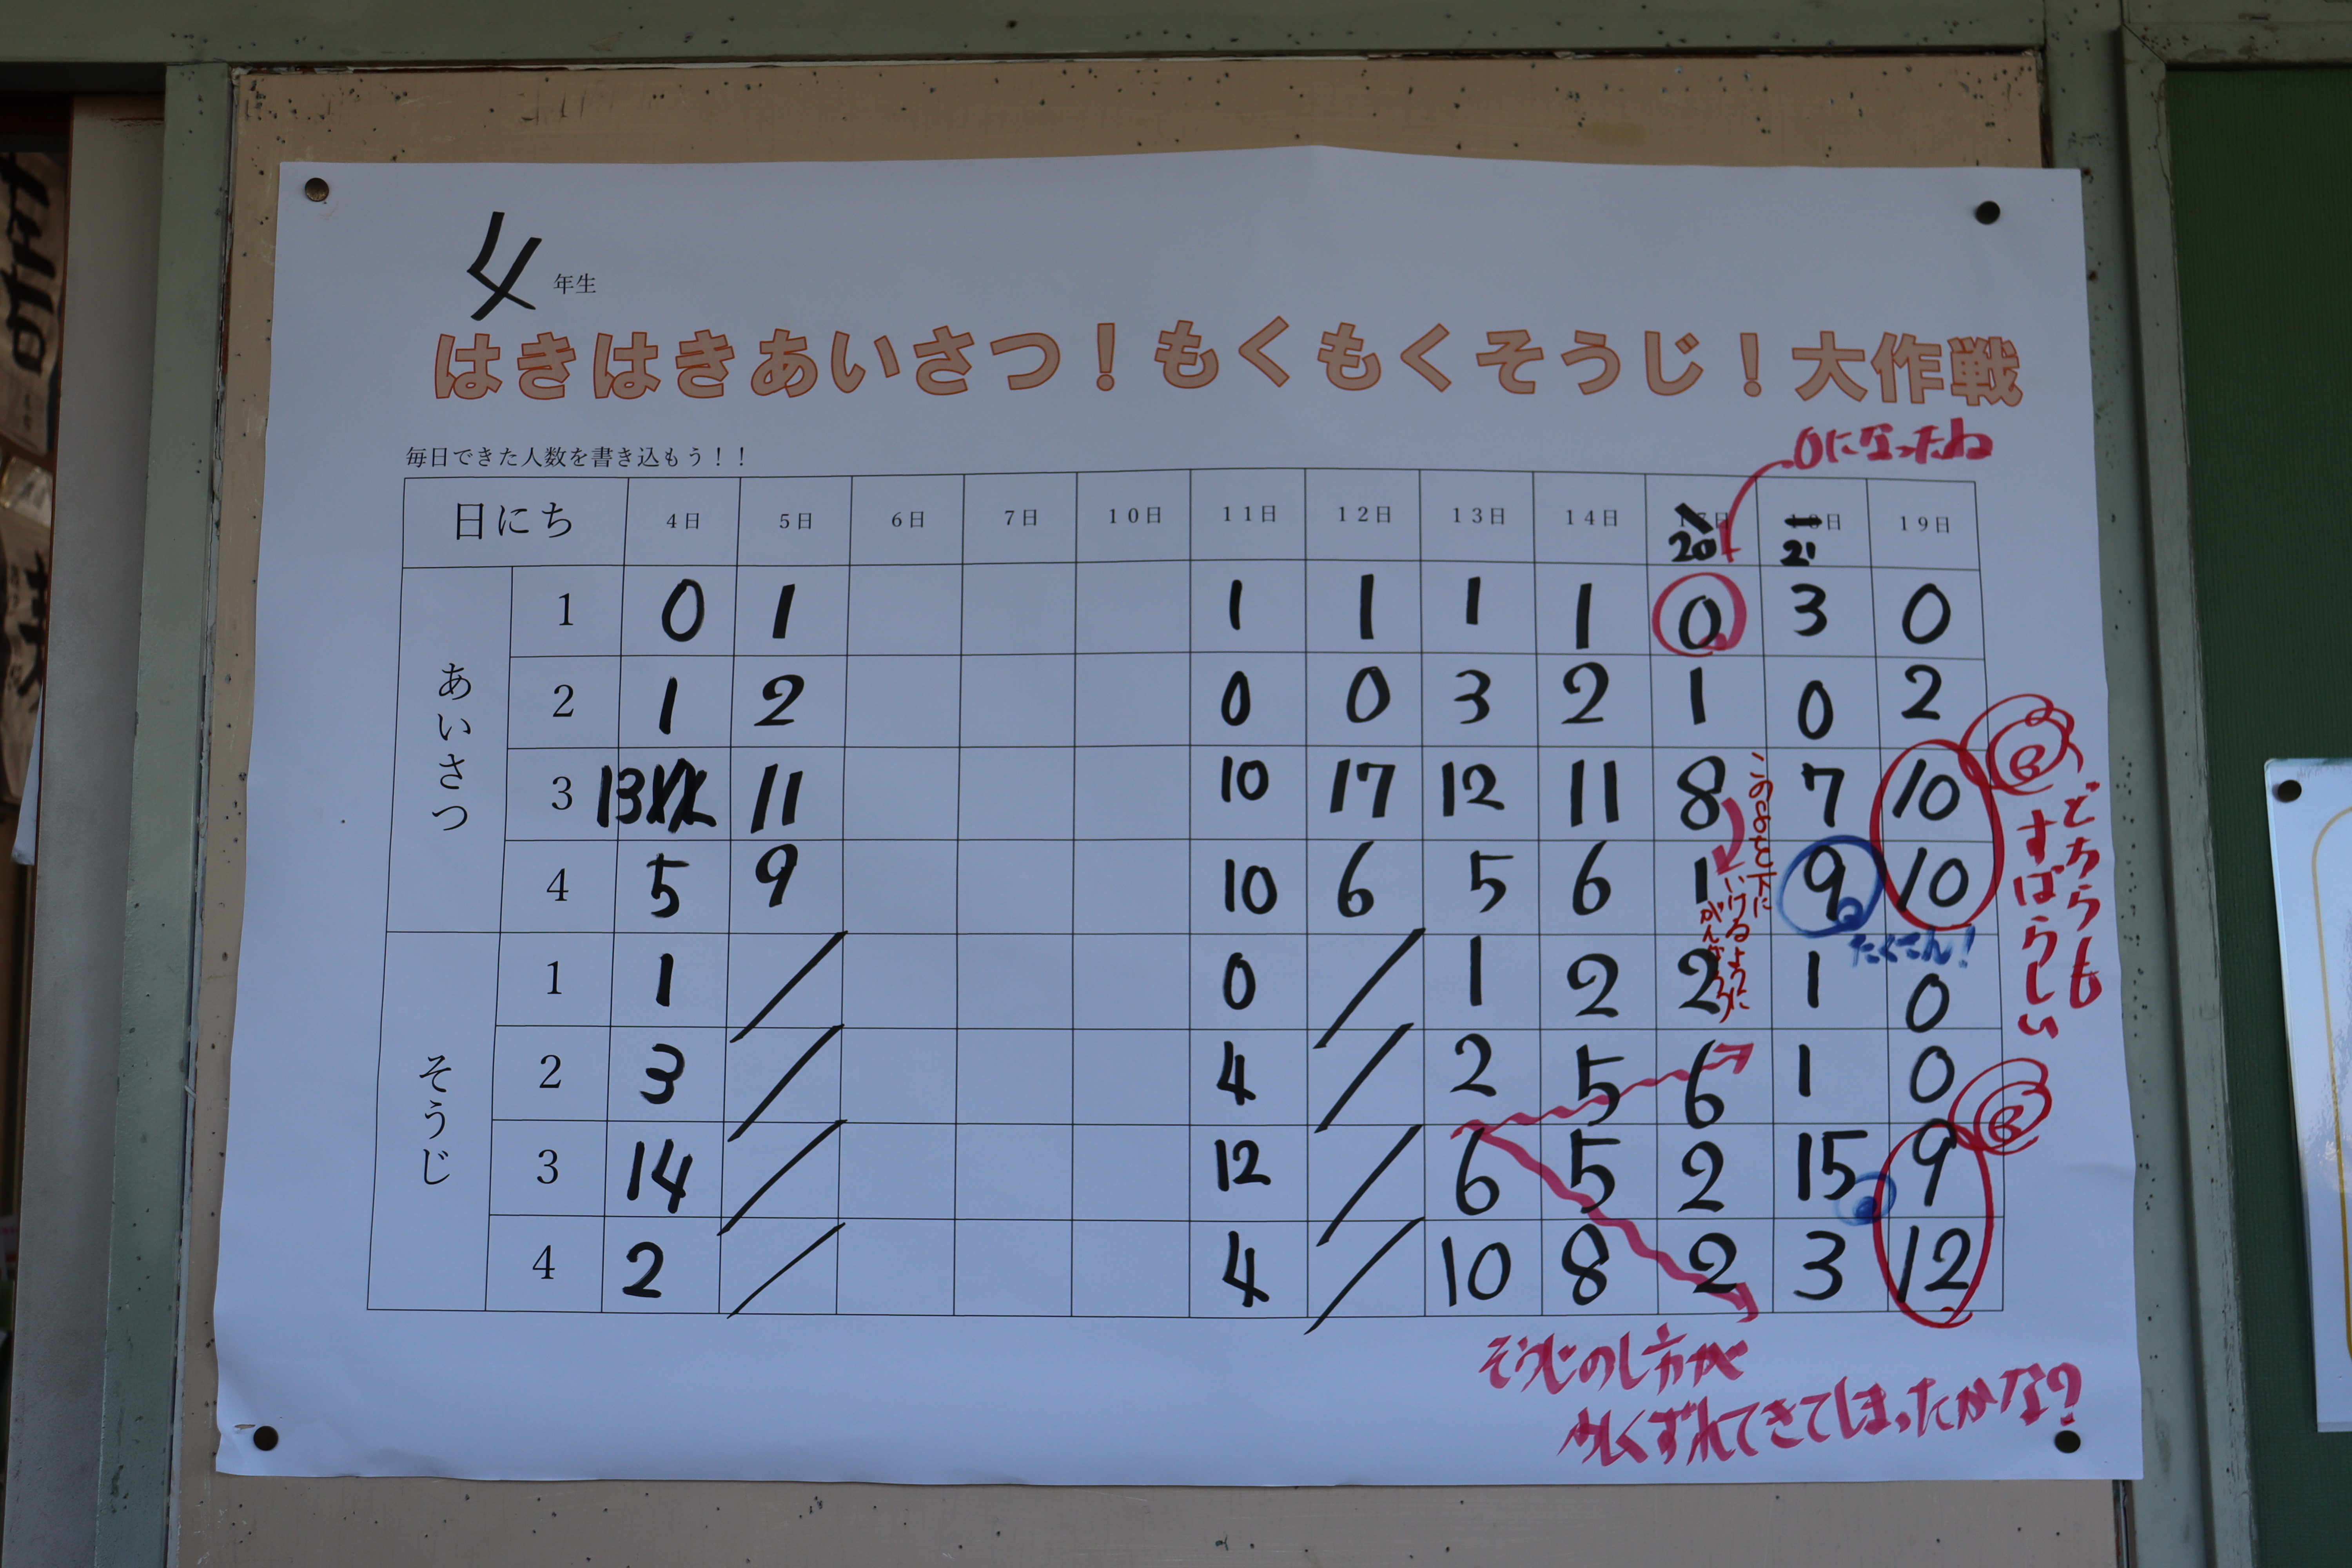 4年生
はきはきあいさつ！もくもくそうじ！大作戦
0になったね
毎日できた人数を書き込もう！！
日にち 4日 5日 6日 7日 10日 11日 12日 13日 14日 20 21 19日
あいさつ
1 0 1 1 1 1 1 0 3 0
2 1 2 0 0 3 2 1 0 2
3 13 11 10 17 12 11 8 7 10
4 5 9 10 6 5 6 1 9 10
そうじ
1 1 0 1 2 2 1 0
2 3 4 2 5 6 1 0
3 14 12 6 5 2 15 9
4 2 4 10 8 2 3 12
この8を下に
いけるように
がんばろう
たくさん！
どちらも
すばらしい
そうじのし方が
くずれてきてしまったかな？